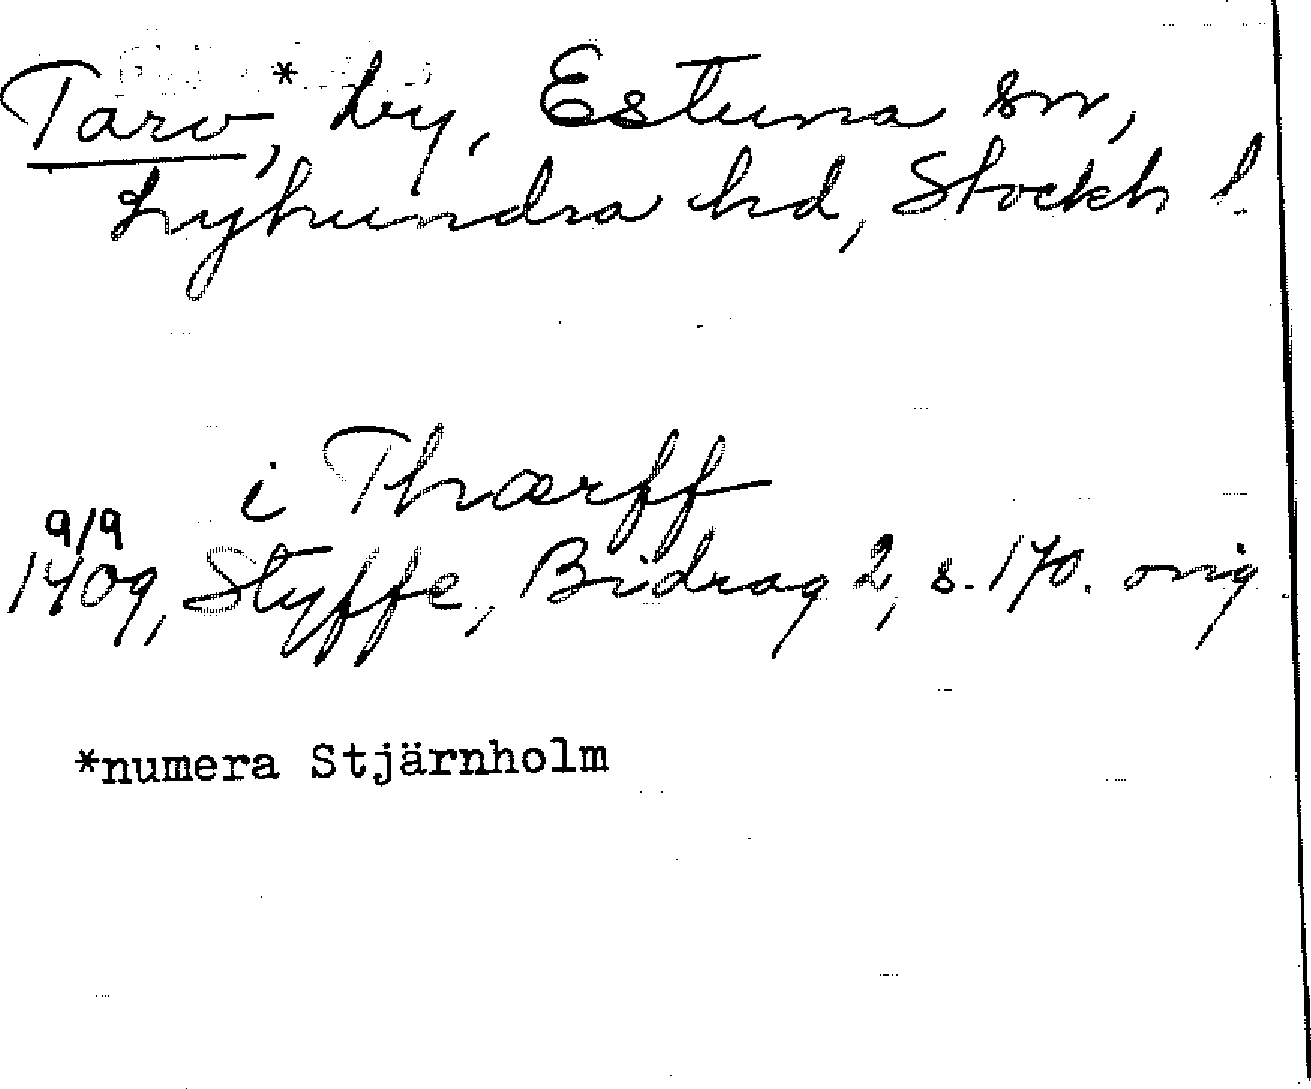 Tarv,* by, Estuna sn,
Lyhundra hd, Stockh l.
i Thærff
9/9
1409, Styffe, Bidrag 2, s. 170. orig.
*numera Stjärnholm